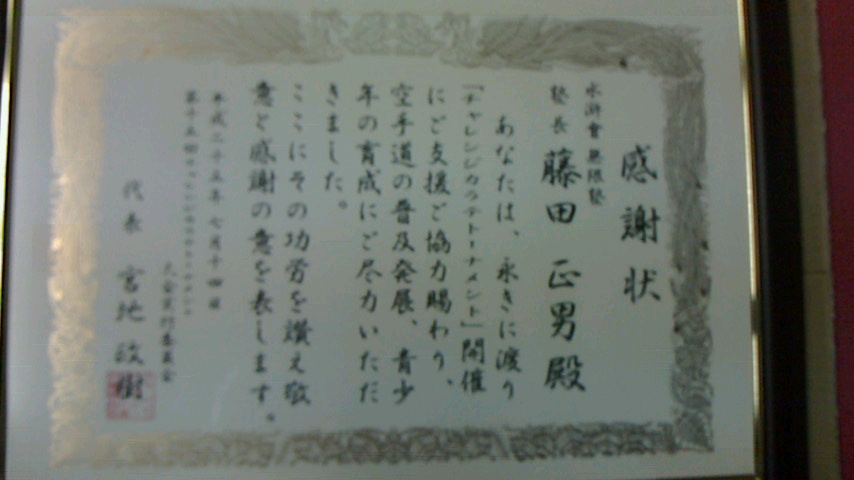 感謝状
水滸會 無限塾
塾長 藤田 正男 殿
あなたは、永きに渡り
「チャレンジカラテトーナメント」開催
にご支援ご協力賜わり、
空手道の普及発展、青少
年の育成にご尽力いただ
きました。
ここにその功労を讃え敬
意と感謝の意を表します。
平成二十五年 七月十四日
第十五回チャレンジカラテトーナメント
大会実行委員会
代表 宮地 政樹